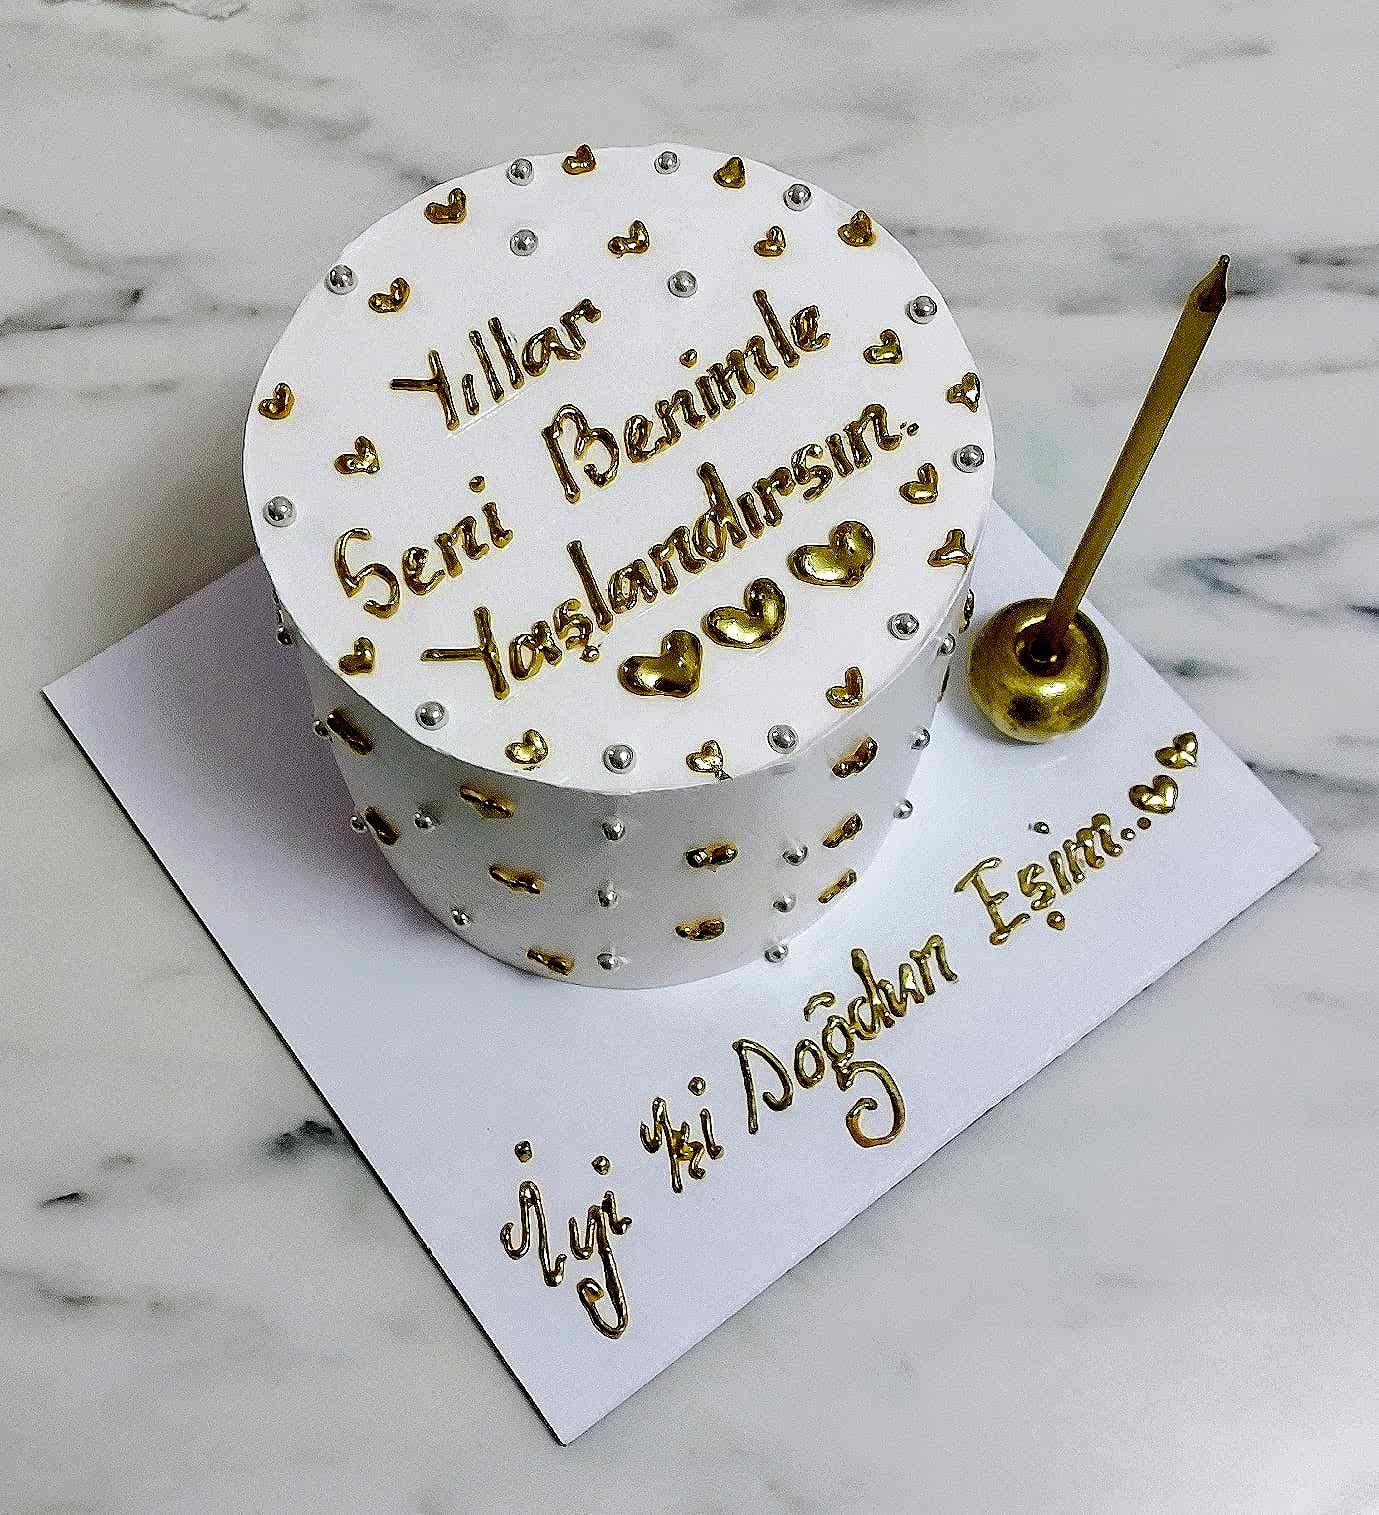 Yıllar
Seni Benimle
Yaşlandırsın..
İyi ki Doğdun Eşim..